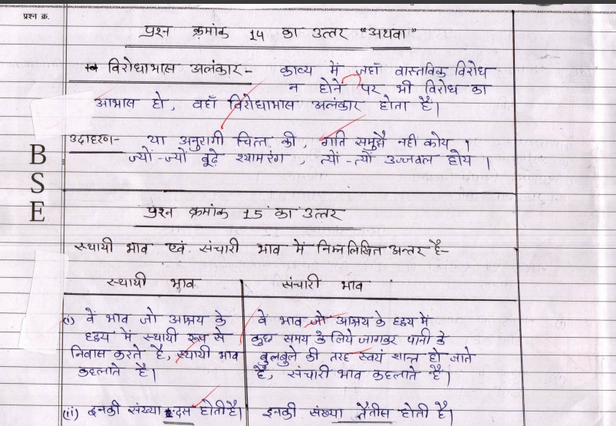 प्रश्न क्र.
प्रश्न क्रमांक 14 का उत्तर "अथवा"
विरोधाभास अलंकार - काव्य में जहाँ वास्तविक विरोध
न होने पर भी विरोध का
आभास हो, वहाँ विरोधाभास अलंकार होता है।
उदाहरण- या अनुरागी चित्त की, गति समुझै नही कोय।
ज्यों-ज्यों बूढ़े श्यामरंग, त्यों-त्यों उज्जवल होय।
B
S
E
प्रश्न क्रमांक 15 का उत्तर
स्थायी भाव एवं संचारी भाव में निम्नलिखित अन्तर है-
स्थायी भाव संचारी भाव
(i) वें भाव जो आश्रय के वे भाव जो आश्रय के हृदय में
हृदय में स्थायी रूप से कुछ समय के लिये जागकर पानी के
निवास करते है, स्थायी भाव बुलबुले की तरह स्वयं शान्त हो जाते
कहलाते है। है, संचारी भाव कहलाते है।
(ii) इनकी संख्या दस होती है। इनकी संख्या तैंतीस होती है।